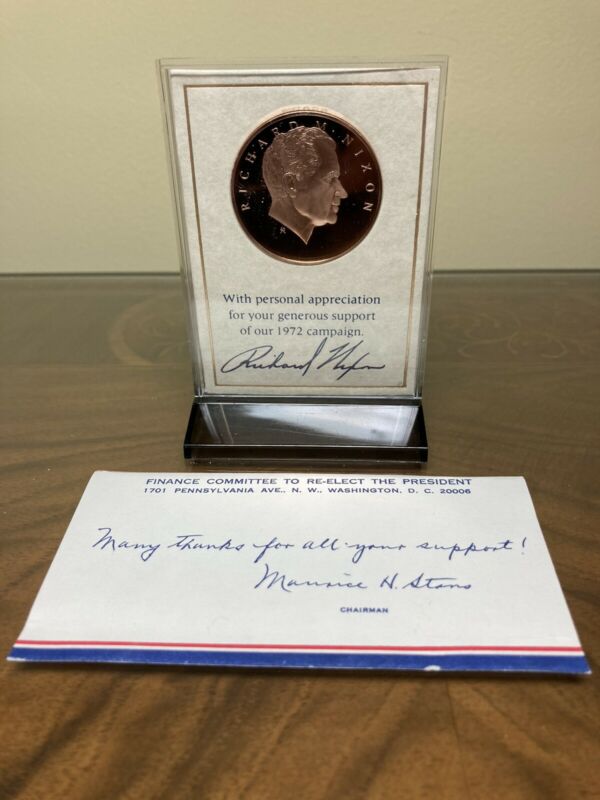 RICHARD M. NIXON
R
With personal appreciation
for your generous support
of our 1972 campaign.
Richard Nixon
FINANCE COMMITTEE TO RE-ELECT THE PRESIDENT
1701 PENNSYLVANIA AVE., N. W., WASHINGTON, D. C. 20006
Many thanks for all your support!
Maurice H. Stans
CHAIRMAN